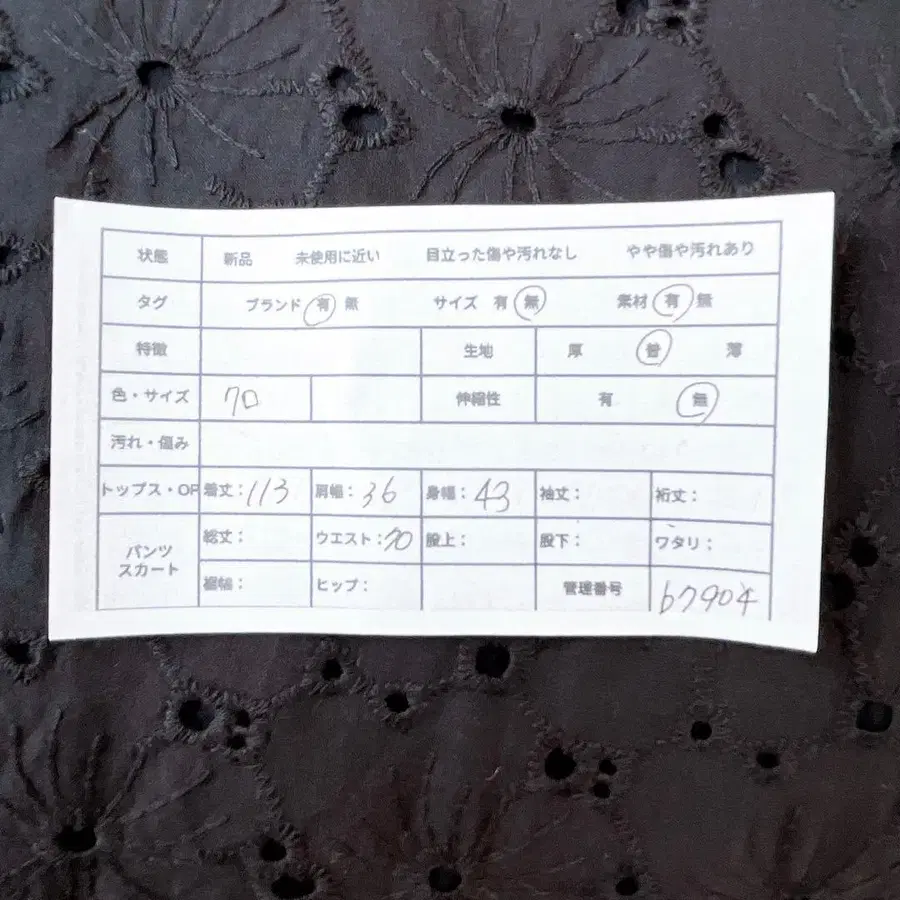 状態 新品 未使用に近い 目立った傷や汚れなし やや傷や汚れあり
タグ ブランド 有 無 サイズ 有 無 素材 有 無
特徴 生地 厚 普 薄
色・サイズ クロ 伸縮性 有 無
汚れ・傷み
トップス・OP 着丈:113 肩幅:36 身幅:43 袖丈: 裄丈:
パンツ スカート 総丈: ウエスト: 股上: 股下: ワタリ:
裾幅: ヒップ: 管理番号 b7904